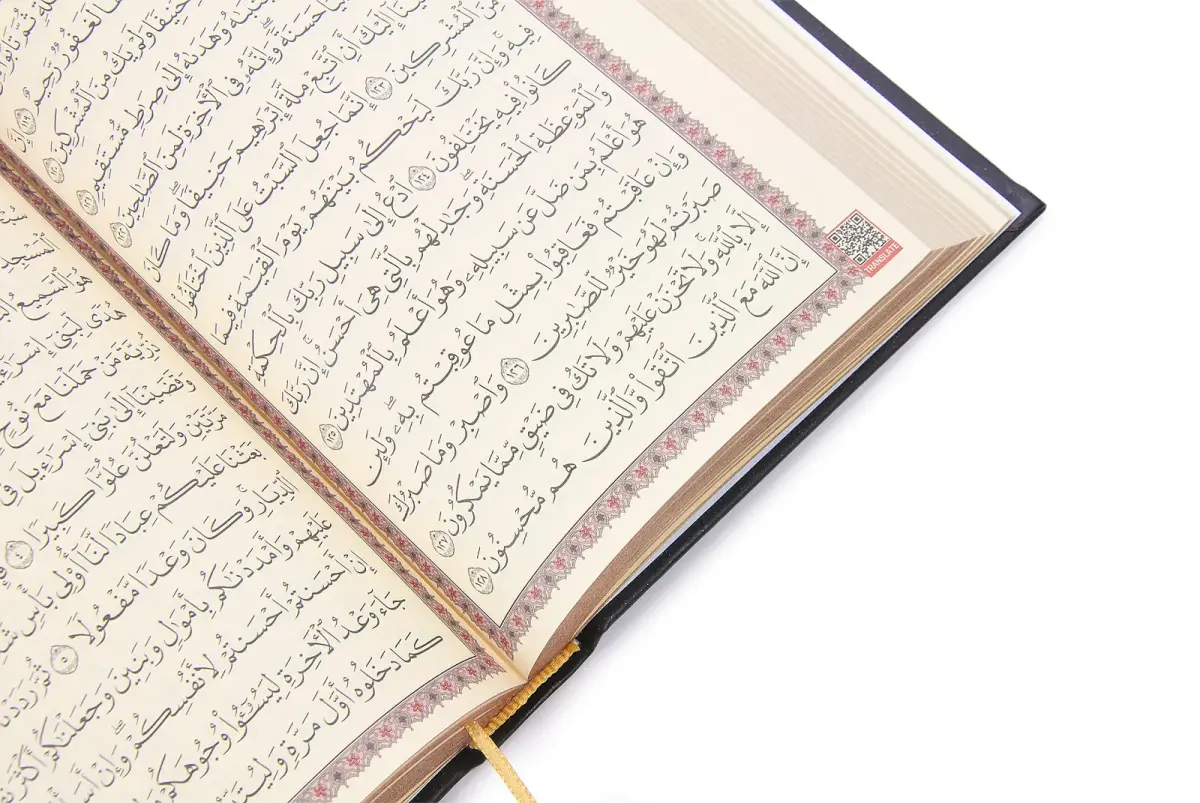 ثُمَّ تَابُوا۟
لَغَفُورٌ رَّحِيمٌ ١١٩ إِنَّ
حَنِيفًا وَلَمْ يَكُ مِنَ ٱلْمُشْرِكِينَ ١٢٠
وَهَدَىٰهُ إِلَىٰ صِرَٰطٍ مُّسْتَقِيمٍ ١٢١
حَسَنَةً وَإِنَّهُۥ فِى ٱلْأَخِرَةِ لَمِنَ ٱلصَّـٰلِحِينَ ١٢٢
إِلَيْكَ أَنِ ٱتَّبِعْ مِلَّةَ إِبْرَٰهِيمَ حَنِيفًا وَمَا كَانَ
مِنَ ٱلْمُشْرِكِينَ ١٢٣ إِنَّمَا جُعِلَ ٱلسَّبْتُ عَلَى ٱلَّذِينَ ٱخْتَلَفُوا۟
فِيهِ وَإِنَّ رَبَّكَ لَيَحْكُمُ بَيْنَهُمْ يَوْمَ ٱلْقِيَـٰمَةِ فِيمَا
كَانُوا۟ فِيهِ يَخْتَلِفُونَ ١٢٤ ٱدْعُ إِلَىٰ سَبِيلِ رَبِّكَ بِٱلْحِكْمَةِ
وَٱلْمَوْعِظَةِ ٱلْحَسَنَةِ وَجَـٰدِلْهُم بِٱلَّتِى هِىَ أَحْسَنُ إِنَّ رَبَّكَ
هُوَ أَعْلَمُ بِمَن ضَلَّ عَن سَبِيلِهِۦ وَهُوَ أَعْلَمُ بِٱلْمُهْتَدِينَ ١٢٥
وَإِنْ عَاقَبْتُمْ فَعَاقِبُوا۟ بِمِثْلِ مَا عُوقِبْتُم بِهِۦ وَلَئِن
صَبَرْتُمْ لَهُوَ خَيْرٌ لِّلصَّـٰبِرِينَ ١٢٦ وَٱصْبِرْ وَمَا صَبْرُكَ
إِلَّا بِٱللَّهِ وَلَا تَحْزَنْ عَلَيْهِمْ وَلَا تَكُ فِى ضَيْقٍ مِّمَّا يَمْكُرُونَ ١٢٧
إِنَّ ٱللَّهَ مَعَ ٱلَّذِينَ ٱتَّقَوا۟ وَّٱلَّذِينَ هُم مُّحْسِنُونَ ١٢٨
TRANSLATE
ٱلْمَسْجِدِ
هُوَ ٱلسَّمِيعُ
هُدًى لِّبَنِىٓ إِسْرَٰٓءِيلَ
ذُرِّيَّةَ مَنْ حَمَلْنَا مَعَ نُوحٍ
وَقَضَيْنَآ إِلَىٰ بَنِىٓ إِسْرَٰٓءِيلَ فِى
مَرَّتَيْنِ وَلَتَعْلُنَّ عُلُوًّا كَبِيرًا ٤
بَعَثْنَا عَلَيْكُمْ عِبَادًا لَّنَآ أُو۟لِى بَأْسٍ
ٱلدِّيَارِ وَكَانَ وَعْدًا مَّفْعُولًا ٥ ثُمَّ رَدَدْنَا
عَلَيْهِمْ وَأَمْدَدْنَـٰكُم بِأَمْوَٰلٍ وَبَنِينَ وَجَعَلْنَـٰكُمْ أَكْثَرَ
إِنْ أَحْسَنتُمْ أَحْسَنتُمْ لِأَنفُسِكُمْ وَإِنْ
جَآءَ وَعْدُ ٱلْأَخِرَةِ لِيَسُـۥٓـُٔوا۟ وُجُوهَكُمْ
كَمَا دَخَلُوهُ أَوَّلَ مَرَّةٍ